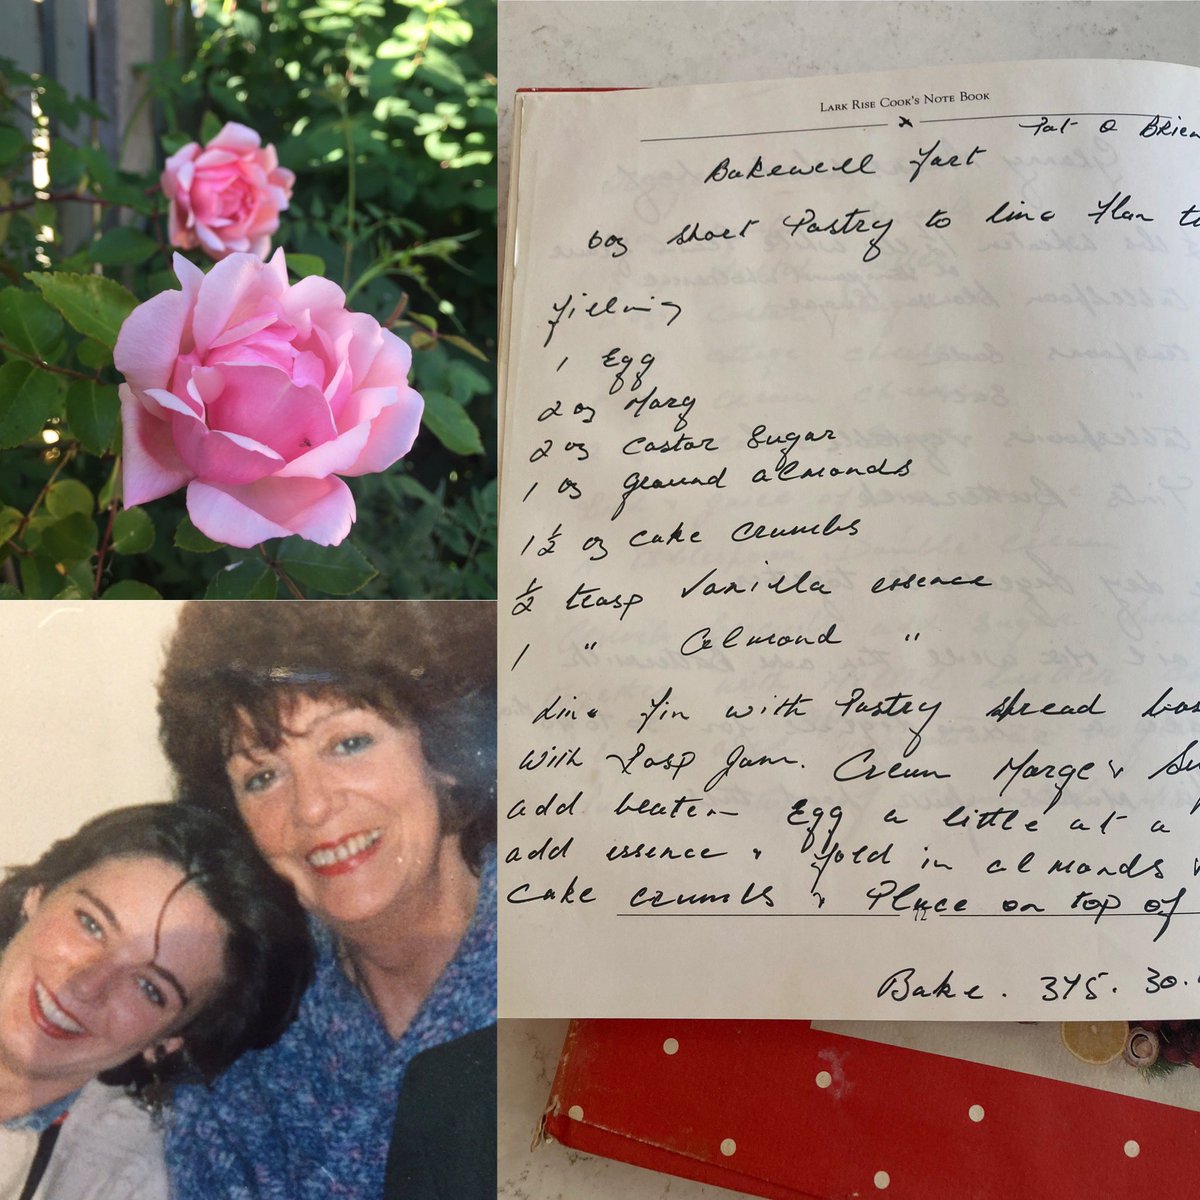 LARK RISE COOK'S NOTE BOOK
Pat O Brien
Bakewell Tart
6oz short Pastry to line flan
Filling
1 Egg
2 oz Marg
2 oz castar Sugar
1 oz ground almonds
1 ½ oz cake crumbs
½ teasp Vanilla essence
1 " Almond "
Line Tin with Pastry spread
with Rasp Jam. Cream Marge &
add beaten Egg a little at a
add essence & fold in almonds
cake crumbs & Place on top of
Bake. 375. 30.